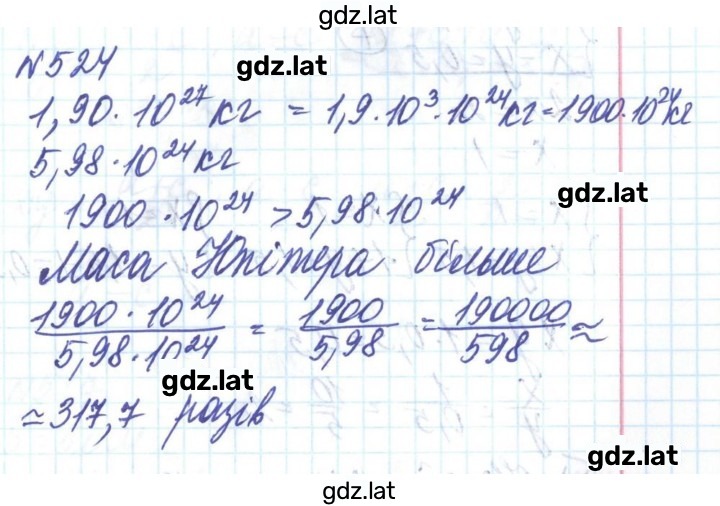 gdz.lat
№524
gdz.lat
1,90·10²⁷кг = 1,9·10³·10²⁴кг=1900·10²⁴кг
5,98·10²⁴кг
gdz.lat
1900·10²⁴>5,98·10²⁴
Маса Юпітера більше
1900·10²⁴/5,98·10²⁴ = 1900/5,98 = 190000/598 ≈
gdz.lat
≈317,7 разів
gdz.lat
gdz.lat